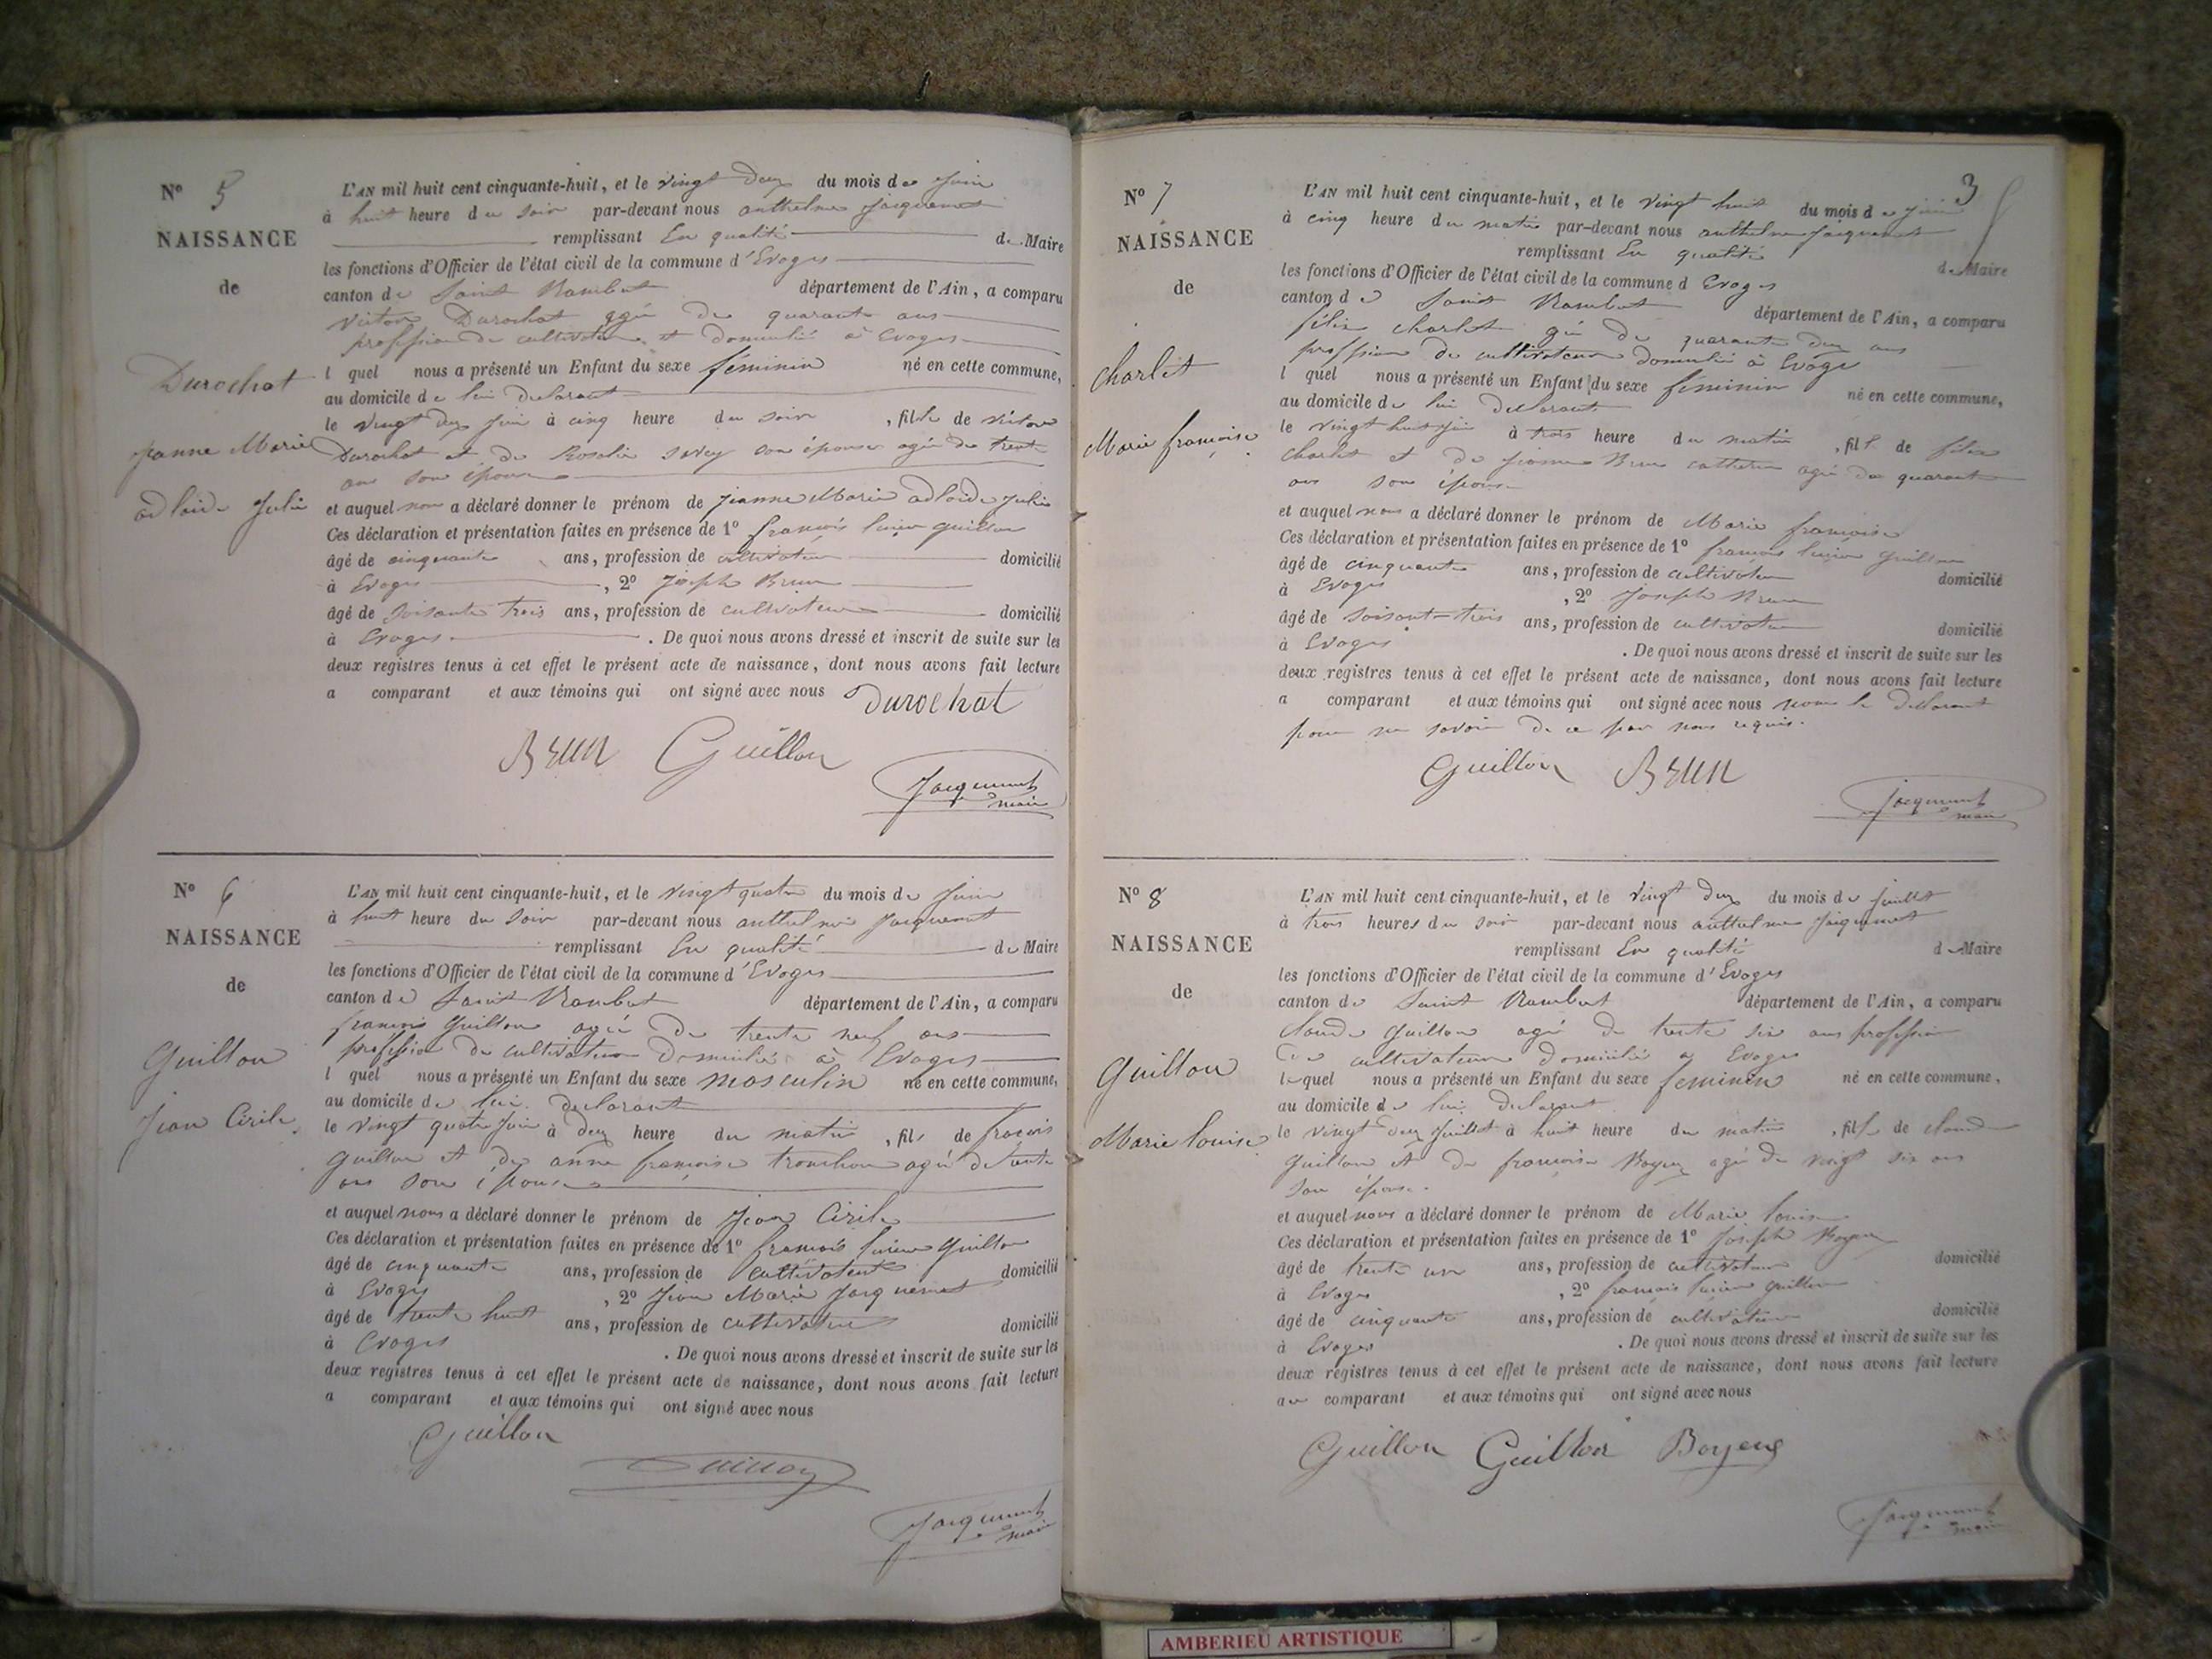 N° 5
NAISSANCE
de
Durochat
Jeanne Marie
adlaide Julie
L'AN mil huit cent cinquante-huit, et le vingt deux du mois de Juin
à huit heure du soir par-devant nous anthelme Jacquemet
remplissant En qualité de Maire
les fonctions d'Officier de l'état civil de la commune d'Evoges
canton de Saint Rambert département de l'Ain, a comparu
Victor Durochat agé de quarante ans
profession de cultivateur et domicilié à Evoges
l quel nous a présenté un Enfant du sexe féminin né en cette commune,
au domicile de lui déclarant
le vingt deux Juin à cinq heure du soir, fille de Victor
Durochat et de Roselie Savey son épouse agée de trente
ans son épouse
et auquel nous a déclaré donner le prénom de Jeanne Marie adlaide Julie
Ces déclaration et présentation faites en présence de 1° francois lucien Guillon
âgé de cinquante ans, profession de cultivateur domicilié
à Evoges, 2° Joseph Brun
âgé de soisante trois ans, profession de cultivateur domicilié
à Evoges. De quoi nous avons dressé et inscrit de suite sur les
deux registres tenus à cet effet le présent acte de naissance, dont nous avons fait lecture
a comparant et aux témoins qui ont signé avec nous Durochat
Brun Guillon
Jacquemet
maire
N° 6
NAISSANCE
de
Guillon
Jean Cirile
L'AN mil huit cent cinquante-huit, et le vingt quatre du mois de Juin
à huit heure du soir par-devant nous anthelme Jacquemet
remplissant En qualité de Maire
les fonctions d'Officier de l'état civil de la commune d'Evoges
canton de Saint Rambert département de l'Ain, a comparu
francois Guillon agé de trente neuf ans
profession de cultivateur Domicilié à Evoges
l quel nous a présenté un Enfant du sexe masculin né en cette commune,
au domicile de lui declarant
le vingt quatre Juin à deux heure du matin, fils de francois
Guillon et de anne francoise tronchon agée de trente
ans son épouse
et auquel nous a déclaré donner le prénom de Jean Cirile
Ces déclaration et présentation faites en présence de 1° francois lucien Guillon
âgé de cinquante ans, profession de cultivateur domicilié
à Evoges, 2° Jean Marie Jacquemet
âgé de trente huit ans, profession de cultivateur domicilié
à Evoges. De quoi nous avons dressé et inscrit de suite sur les
deux registres tenus à cet effet le présent acte de naissance, dont nous avons fait lecture
a comparant et aux témoins qui ont signé avec nous
Guillon
Guillon
Jacquemet
maire
3
N° 7
NAISSANCE
de
Charlet
Marie françoise
L'AN mil huit cent cinquante-huit, et le vingt huit du mois de Juin
à cinq heure du matin par-devant nous anthelme Jacquemet
remplissant En qualité de Maire
les fonctions d'Officier de l'état civil de la commune d Evoges
canton de Saint Rambert département de l'Ain, a comparu
félix charlet agé de quarante deux ans
proffsion de cultivateur domicilié à Evoges
l quel nous a présenté un Enfant du sexe féminin né en cette commune,
au domicile de lui declarant
le vingt huit Juin à trois heure du matin, fille de félix
charlet et de Brun catherine agée de quarante
ans son épouse
et auquel nous a déclaré donner le prénom de Marie francoise
Ces déclaration et présentation faites en présence de 1° francois lucien Guillon
âgé de cinquante ans, profession de cultivateur domicilié
à Evoges, 2° Joseph Brun
âgé de soisant-trois ans, profession de cultivateur domicilié
à Evoges. De quoi nous avons dressé et inscrit de suite sur les
deux registres tenus à cet effet le présent acte de naissance, dont nous avons fait lecture
a comparant et aux témoins qui ont signé avec nous non le declarant
pour ne savoir de ce par nous requis.
Guillon Brun
Jacquemet
maire
N° 8
NAISSANCE
de
Guillon
Marie louise
L'AN mil huit cent cinquante-huit, et le vingt deux du mois de Juillet
à trois heures du soir par-devant nous anthelme Jacquemet
remplissant En qualité de Maire
les fonctions d'Officier de l'état civil de la commune d'Evoges
canton de Saint Rambert département de l'Ain, a comparu
claude Guillon agé de trente six ans profession
de cultivateur domicilié à Evoges
lequel nous a présenté un Enfant du sexe féminin né en cette commune,
au domicile de lui declarant
le vingt deux Juillet à huit heure du matin, fille de claude
Guillon et de francoise Boyeux agée de vingt six ans
son épouse.
et auquel nous a déclaré donner le prénom de Marie louise
Ces déclaration et présentation faites en présence de 1° Joseph Boyeux
âgé de trente un ans, profession de cultivateur domicilié
à Evoges, 2° francois lucien Guillon
âgé de cinquante ans, profession de cultivateur domicilié
à Evoges. De quoi nous avons dressé et inscrit de suite sur les
deux registres tenus à cet effet le présent acte de naissance, dont nous avons fait lecture
au comparant et aux témoins qui ont signé avec nous
Guillon Guillon Boyeux
Jacquemet
maire
AMBERIEU ARTISTIQUE